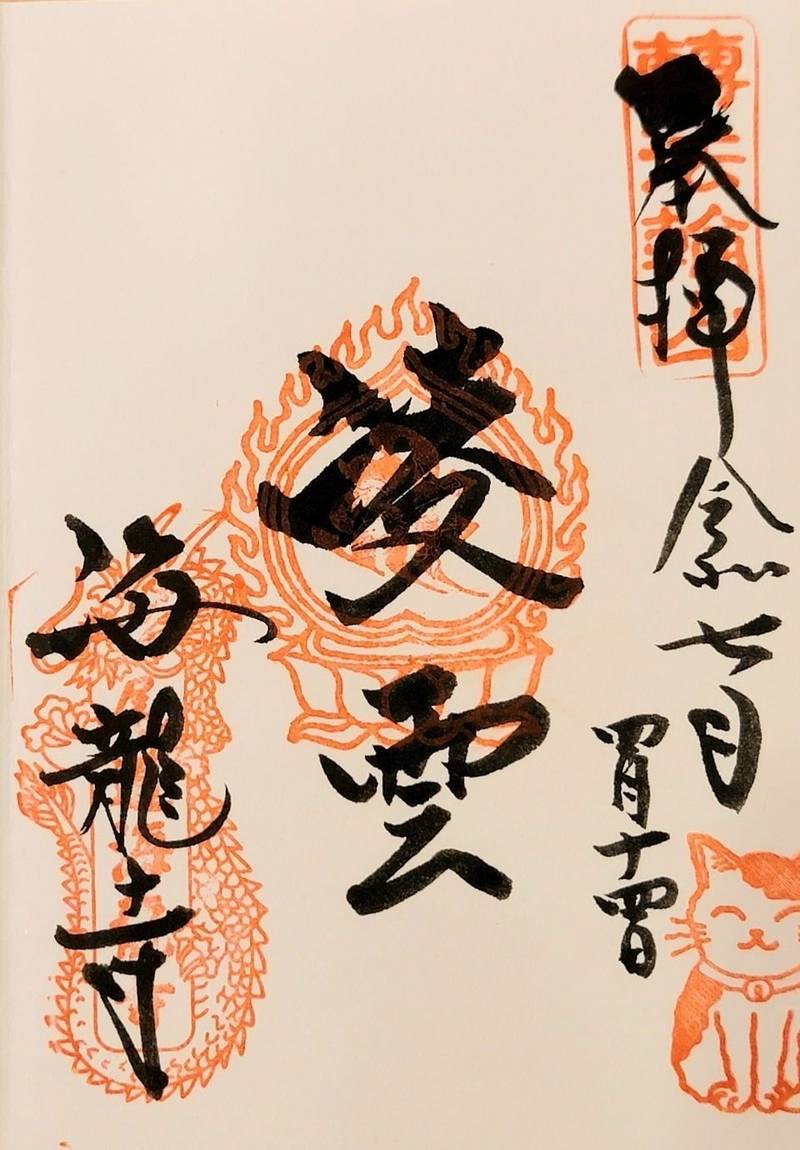 奉拝
令和七年
四月十四日
凌雲
海龍寺